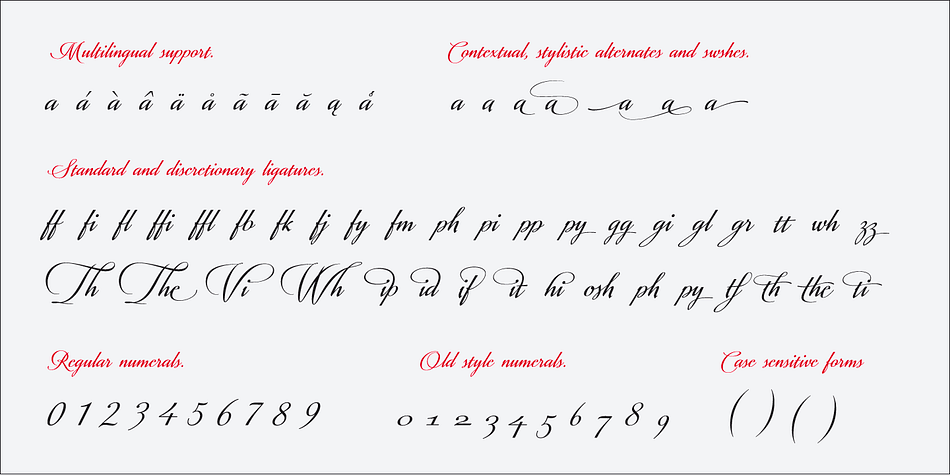 Multilingual support.
Contextual, stylistic alternates and swshes.
a á à â ä å ã ā ă ą ǻ
a a a a a a a
Standard and discretionary ligatures.
ff fi fl ffi ffl fb fk fj fy fm ph pi pp py gg gi gl gr tt wh zz
Th The Vi Wh ip id if it hi osh ph py tf th the ti
Regular numerals.
Old style numerals.
Case sensitive forms
0 1 2 3 4 5 6 7 8 9
0 1 2 3 4 5 6 7 8 9
( ) ( )